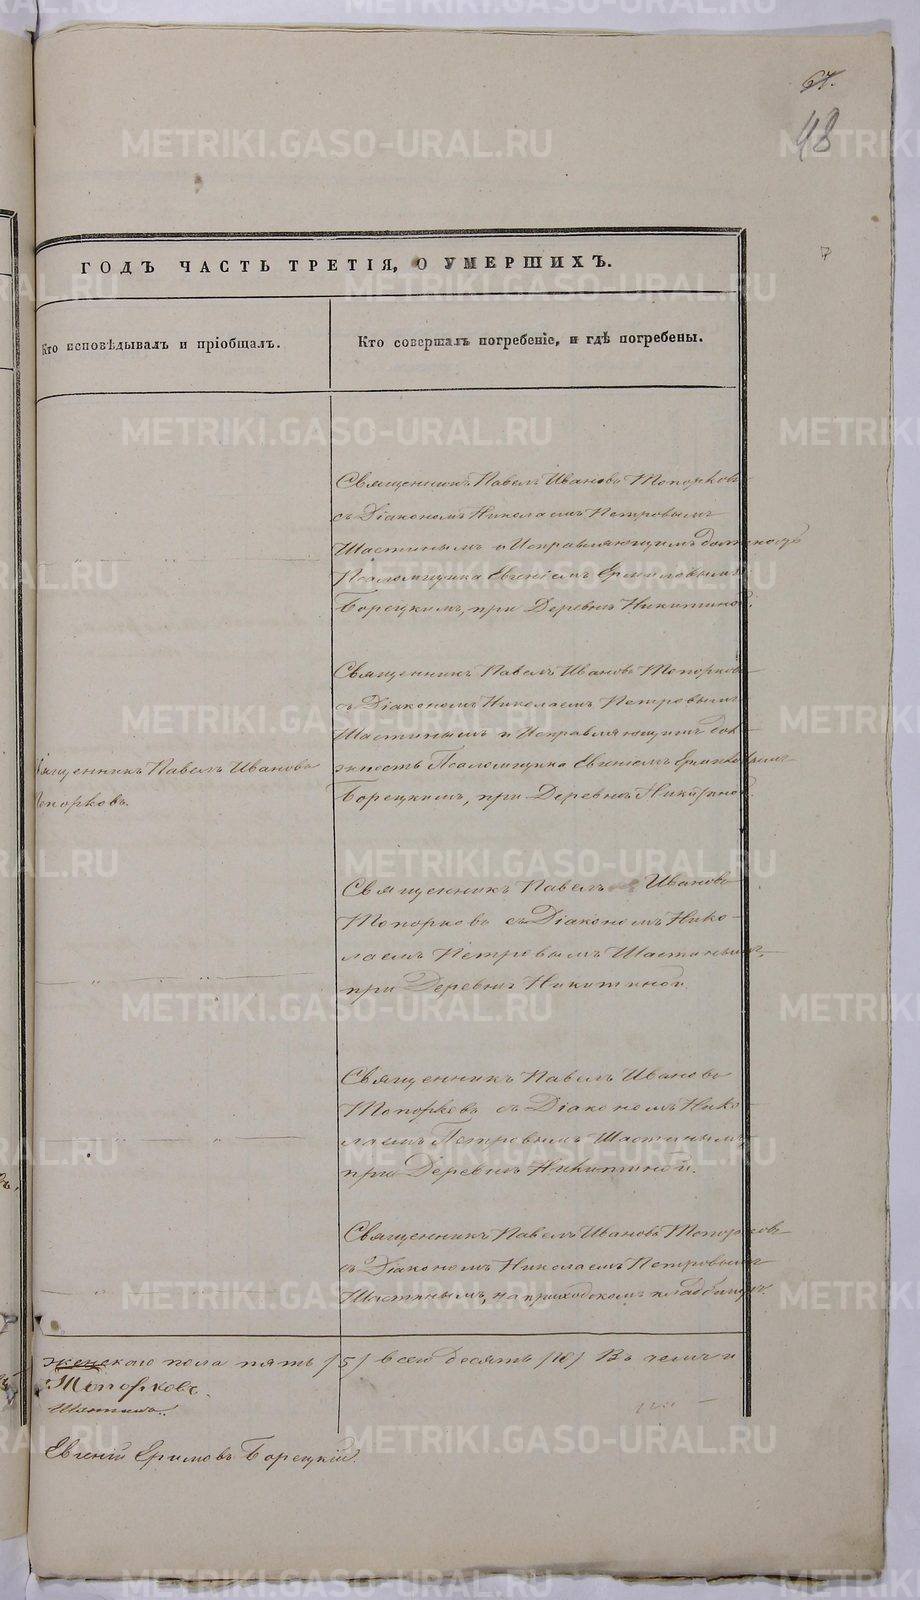 67.
48
ГОДЪ ЧАСТЬ ТРЕТІЯ, О УМЕРШИХЪ.
Кто исповѣдывалъ и пріобщалъ.
Кто совершалъ погребеніе, и гдѣ погребены.
Священникъ Павелъ Ивановъ Топорковъ
съ Діакономъ Николаемъ Петровымъ
Шастинымъ и Исправляющимъ должность
Псаломщика Евгеніемъ Ермиловымъ
Борецкимъ, при Деревнѣ Никитиной.
Священникъ Павелъ Ивановъ
Топорковъ.
Священникъ Павелъ Ивановъ Топорковъ
съ Діакономъ Николаемъ Петровымъ
Шастинымъ и Исправляющимъ дол-
жность Псаломщика Евгеніемъ
Борецкимъ, при Деревнѣ Никитиной.
Священникъ Павелъ Ивановъ
Топорковъ съ Діакономъ Нико-
лаемъ Петровымъ Шастинымъ,
при Деревнѣ Никитиной.
Священникъ Павелъ Ивановъ
Топорковъ съ Діакономъ Нико-
лаемъ Петровымъ Шастинымъ,
при Деревнѣ Никитиной.
Священникъ Павелъ Ивановъ Топорковъ
съ Діакономъ Николаемъ Петровымъ
Шастинымъ, на приходскомъ кладбищѣ.
женскаго пола пять (5) всего десять (10) Въ чемъ и
Топорковъ.
Шастинъ.
Евгеній Борецкій.
METRIKI.GASO-URAL.RU